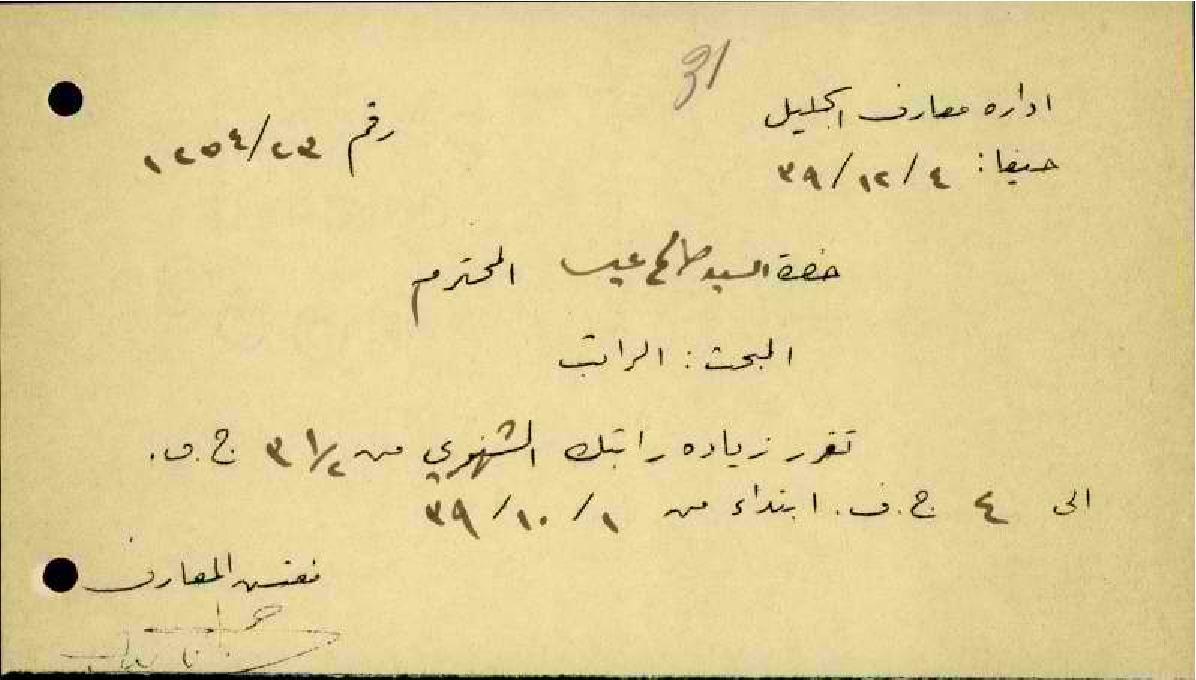 31
اداره معارف الجليل
رقم ١٢٥٤/٢٣
حيفا: ٣٩/١٢/٤
حضرة السيد صالح المحترم
البحث: الراتب
تقرر زياده راتبك الشهري من ٣ ١/٢ ج.ف.
الى ٤ ج.ف. ابتداء من ٣٩/١٠/١
مفتش المعارف